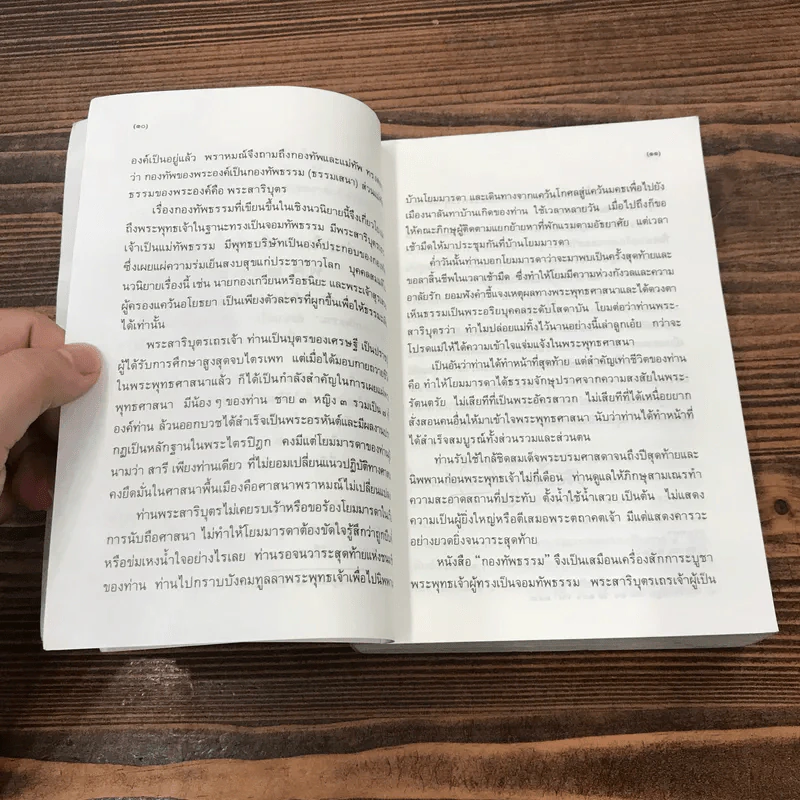 (๑๐)
องค์เป็นอยู่แล้ว พราหมณ์จึงถามถึงกองทัพและแม่ทัพ
ว่า กองทัพของพระองค์เป็นกองทัพธรรม (ธรรมเสนา)
ธรรมของพระองค์คือ พระสาริบุตร
เรื่องกองทัพธรรมที่เขียนขึ้นในเชิงนวนิยายนี้จึงเกี่ยว
ถึงพระพุทธเจ้าในฐานะทรงเป็นจอมทัพธรรม มีพระสาริบุตร
เจ้าเป็นแม่ทัพธรรม มีพุทธบริษัทเป็นองค์ประกอบของ
ซึ่งเผยแผ่ความร่มเย็นสงบสุขแก่ประชาชาวโลก บุคคล
นวนิยายเรื่องนี้ เช่น นายกองเกวียนหรือธนิยะ และพระเจ้า
ผู้ครองแคว้นอโยธยา เป็นเพียงตัวละครที่ผูกขึ้นเพื่อให้
ได้เท่านั้น
พระสาริบุตรเถรเจ้า ท่านเป็นบุตรของเศรษฐี
ผู้ได้รับการศึกษาสูงสุดจบไตรเพท แต่เมื่อได้มอบกาย
ในพระพุทธศาสนาแล้ว ก็ได้เป็นกำลังสำคัญในการเผยแผ่
พุทธศาสนา มีน้อง ๆ ของท่าน ชาย ๓ หญิง ๓ รวมเป็น
องค์ท่าน ล้วนออกบวชได้สำเร็จเป็นพระอรหันต์และมีผลงาน
กฏเป็นหลักฐานในพระไตรปิฎก คงมีแต่โยมมารดาของท่าน
นามว่า สารี เพียงท่านเดียว ที่ไม่ยอมเปลี่ยนแนวปฏิบัติทาง
คงยึดมั่นในศาสนาพื้นเมืองคือศาสนาพราหมณ์ไม่เปลี่ยน
ท่านพระสาริบุตรไม่เคยรบเร้าหรือขอร้องโยมมารดา
การนับถือศาสนา ไม่ทำให้โยมมารดาต้องขัดใจรู้สึกว่าถูก
หรือข่มเหงน้ำใจอย่างไรเลย ท่านรอจนวาระสุดท้ายแห่ง
ของท่าน ท่านไปกราบบังคมทูลลาพระพุทธเจ้าเพื่อไป
(๑๑)
บ้านโยมมารดา และเดินทางจากแคว้นโกศลสู่แคว้นมคธเพื่อไปยัง
เมืองนาลันทาบ้านเกิดของท่าน ใช้เวลาหลายวัน เมื่อไปถึงก็ขอ
ให้คณะภิกษุผู้ติดตามแยกย้ายหาที่พักแรมตามอัธยาศัย แต่เวลา
เช้ามืดให้มาประชุมกันที่บ้านโยมมารดา
ค่ำวันนั้นท่านบอกโยมมารดาว่าจะมาพบเป็นครั้งสุดท้ายและ
ขอลาสิ้นชีพในเวลาเช้ามืด ซึ่งทำให้โยมมีความห่วงกังวลและความ
อาลัยรัก ยอมฟังคำชี้แจงเหตุผลทางพระพุทธศาสนาและได้ดวงตา
เห็นธรรมเป็นพระอริยบุคคลระดับโสดาบัน โยมต่อว่าท่านพระ-
สาริบุตรว่า ทำไมปล่อยแม่ทิ้งไว้นานอย่างนี้เล่าลูกเอ๋ย กว่าจะ
โปรดแม่ให้ได้ความเข้าใจแจ่มแจ้งในพระพุทธศาสนา
เป็นอันว่าท่านได้ทำหน้าที่สุดท้าย แต่สำคัญเท่าชีวิตของท่าน
คือ ทำให้โยมมารดาได้ธรรมจักษุปราศจากความสงสัยในพระ-
รัตนตรัย ไม่เสียทีที่เป็นพระอัครสาวก ไม่เสียทีที่ได้เหนื่อยยาก
สั่งสอนคนอื่นให้มาเข้าใจพระพุทธศาสนา นับว่าท่านได้ทำหน้าที่
ได้สำเร็จสมบูรณ์ทั้งส่วนรวมและส่วนตน
ท่านรับใช้ใกล้ชิดสมเด็จพระบรมศาสดาจนถึงปีสุดท้ายและ
นิพพานก่อนพระพุทธเจ้าไม่กี่เดือน ท่านดูแลให้ภิกษุสามเณรทำ
ความสะอาดสถานที่ประทับ ตั้งน้ำใช้น้ำเสวย เป็นต้น ไม่แสดง
ความเป็นผู้ยิ่งใหญ่หรือตีเสมอพระตถาคตเจ้า มีแต่แสดงคารวะ
อย่างยวดยิ่งจนวาระสุดท้าย
หนังสือ “กองทัพธรรม” จึงเป็นเสมือนเครื่องสักการะบูชา
พระพุทธเจ้าผู้ทรงเป็นจอมทัพธรรม พระสาริบุตรเถรเจ้าผู้เป็น